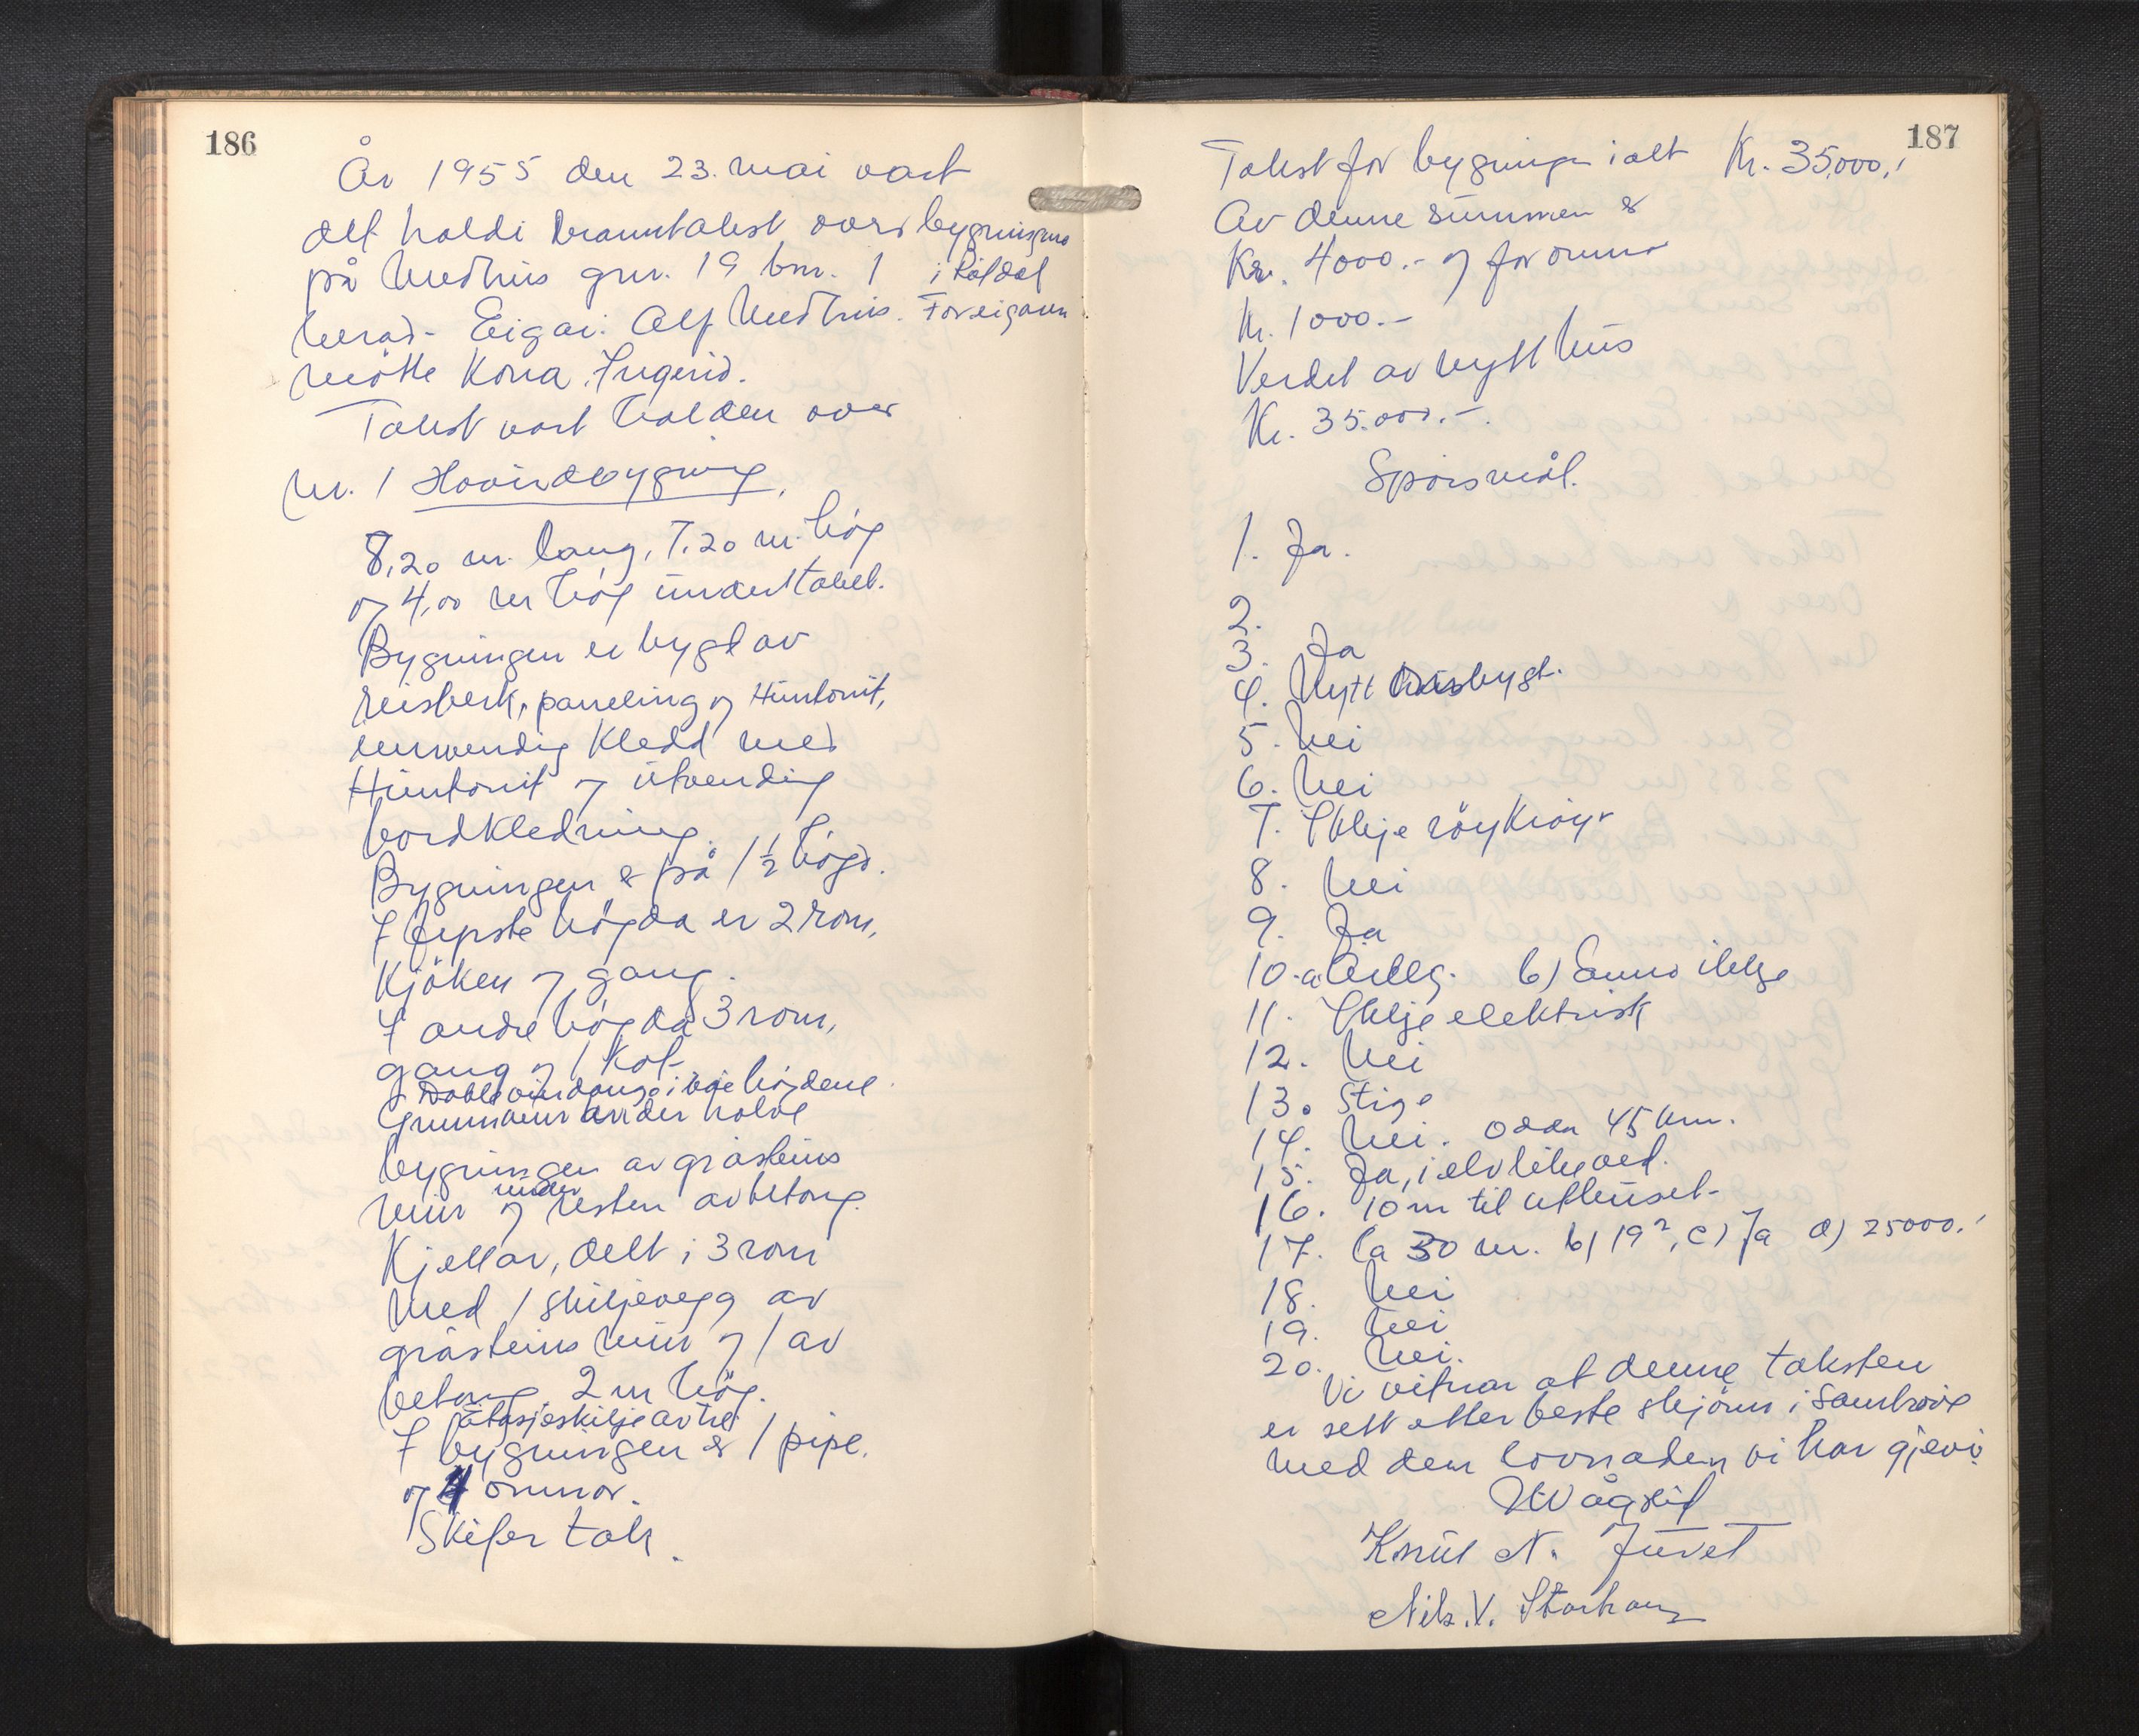 186
År 1955 den 23. mai vart
det haldi branntakst over bygningane
på Medhus gnr. 19 bnr. 1 i Röldal
herad. Eigar: Alf Medhus. For eigaren
møtte Kona, Ingerid.
Takst vart halden over
Nr. 1 Hovudbygning.
8,20 m. lang, 7.20 m. hög
og 4,00 m hög under taket.
Bygningen er bygt av
reisverk, paneling og Huntonit,
innvendig kledd med
Huntonit og utvendig
bordkledning.
Bygningen er på 1 1/2 högd.
I fyrste högda er 2 rom,
Kjöken og gang.
I andre högda 3 rom,
gang og 1 kot.
Doble vindauge i
högdene.
Grunnmur under halve
bygningen av gråsteins
mur og under resten av betong.
Kjellar, delt i 3 rom
med 1 skiljevegg av
gråsteins mur og 1 av
betong, 2 m hög.
Etasjeskilje av tre
I bygningen er 1 pipe.
og 4 omnar.
Skifer tak.
187
Takst for bygningen i alt Kr. 35.000,-
Av denne summen er
Kr. 4000.- og for omnar
Kr. 1000.-
Verdet av nytt hus
Kr. 35.000.-.
Spörsmål.
1. Ja.
2.
3. Ja
4. Nytt husbygt.
5. Nei
6. Nei
7. Ikkje röykröyr
8. Nei
9. Ja
10. a b) Enno ikkje
11. Ikkje elektrisk
12. Nei
13. Stige
14. Nei. Odda 45 km.
15. Ja, i elv
16. 10 m til uthuset.
17. Ca 30 m. b) 19², c) Ja d) 25000.-
18. Nei
19. Nei
20. Nei.
Vi vitnar at denne taksten
er sett etter beste skjönn i samhøve
med den lovnaden vi har gjevi.
Knut N. Juvet
Nils. V.